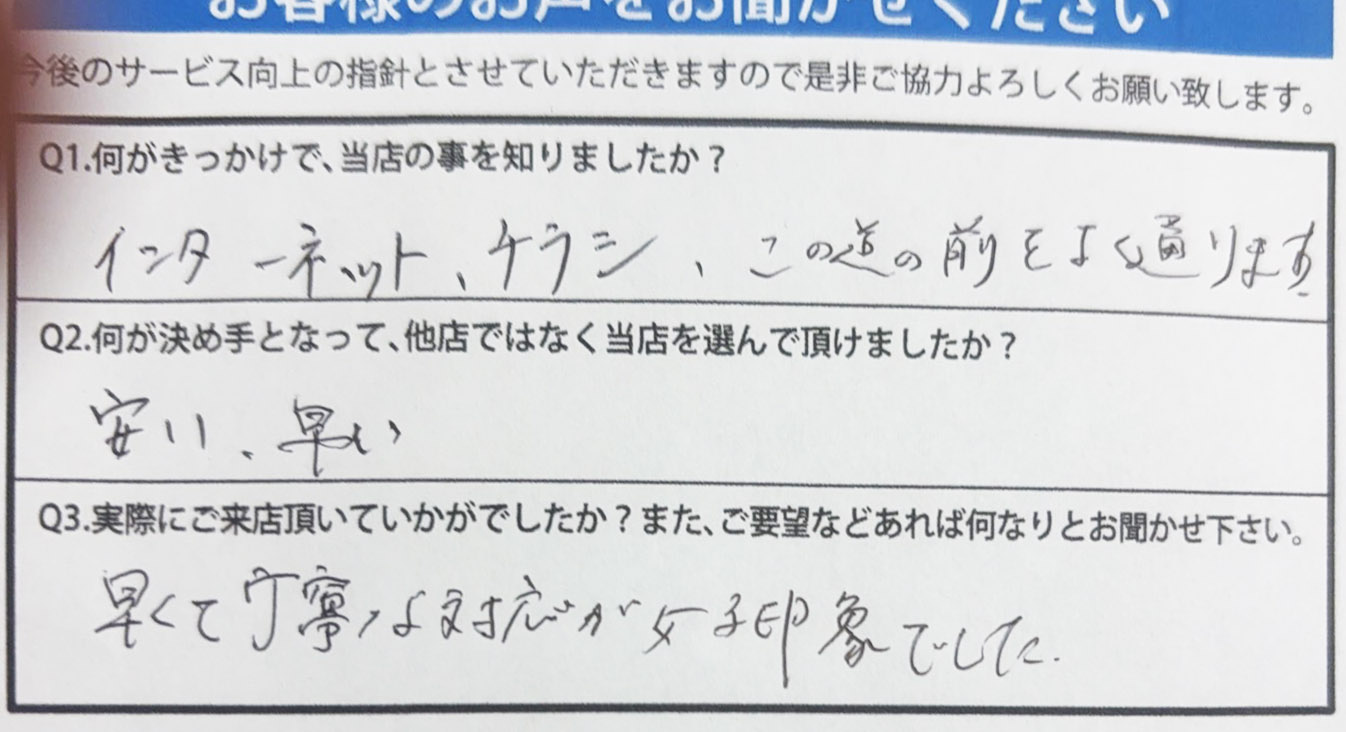 お客様のお声をお聞かせください
今後のサービス向上の指針とさせていただきますので是非ご協力よろしくお願い致します。
Q1.何がきっかけで、当店の事を知りましたか？
インターネット、チラシ、この道の前をよく通ります
Q2.何が決め手となって、他店ではなく当店を選んで頂けましたか？
安い、早い
Q3.実際にご来店頂いていかがでしたか？また、ご要望などあれば何なりとお聞かせ下さい。
早くて丁寧な対応が好印象でした.